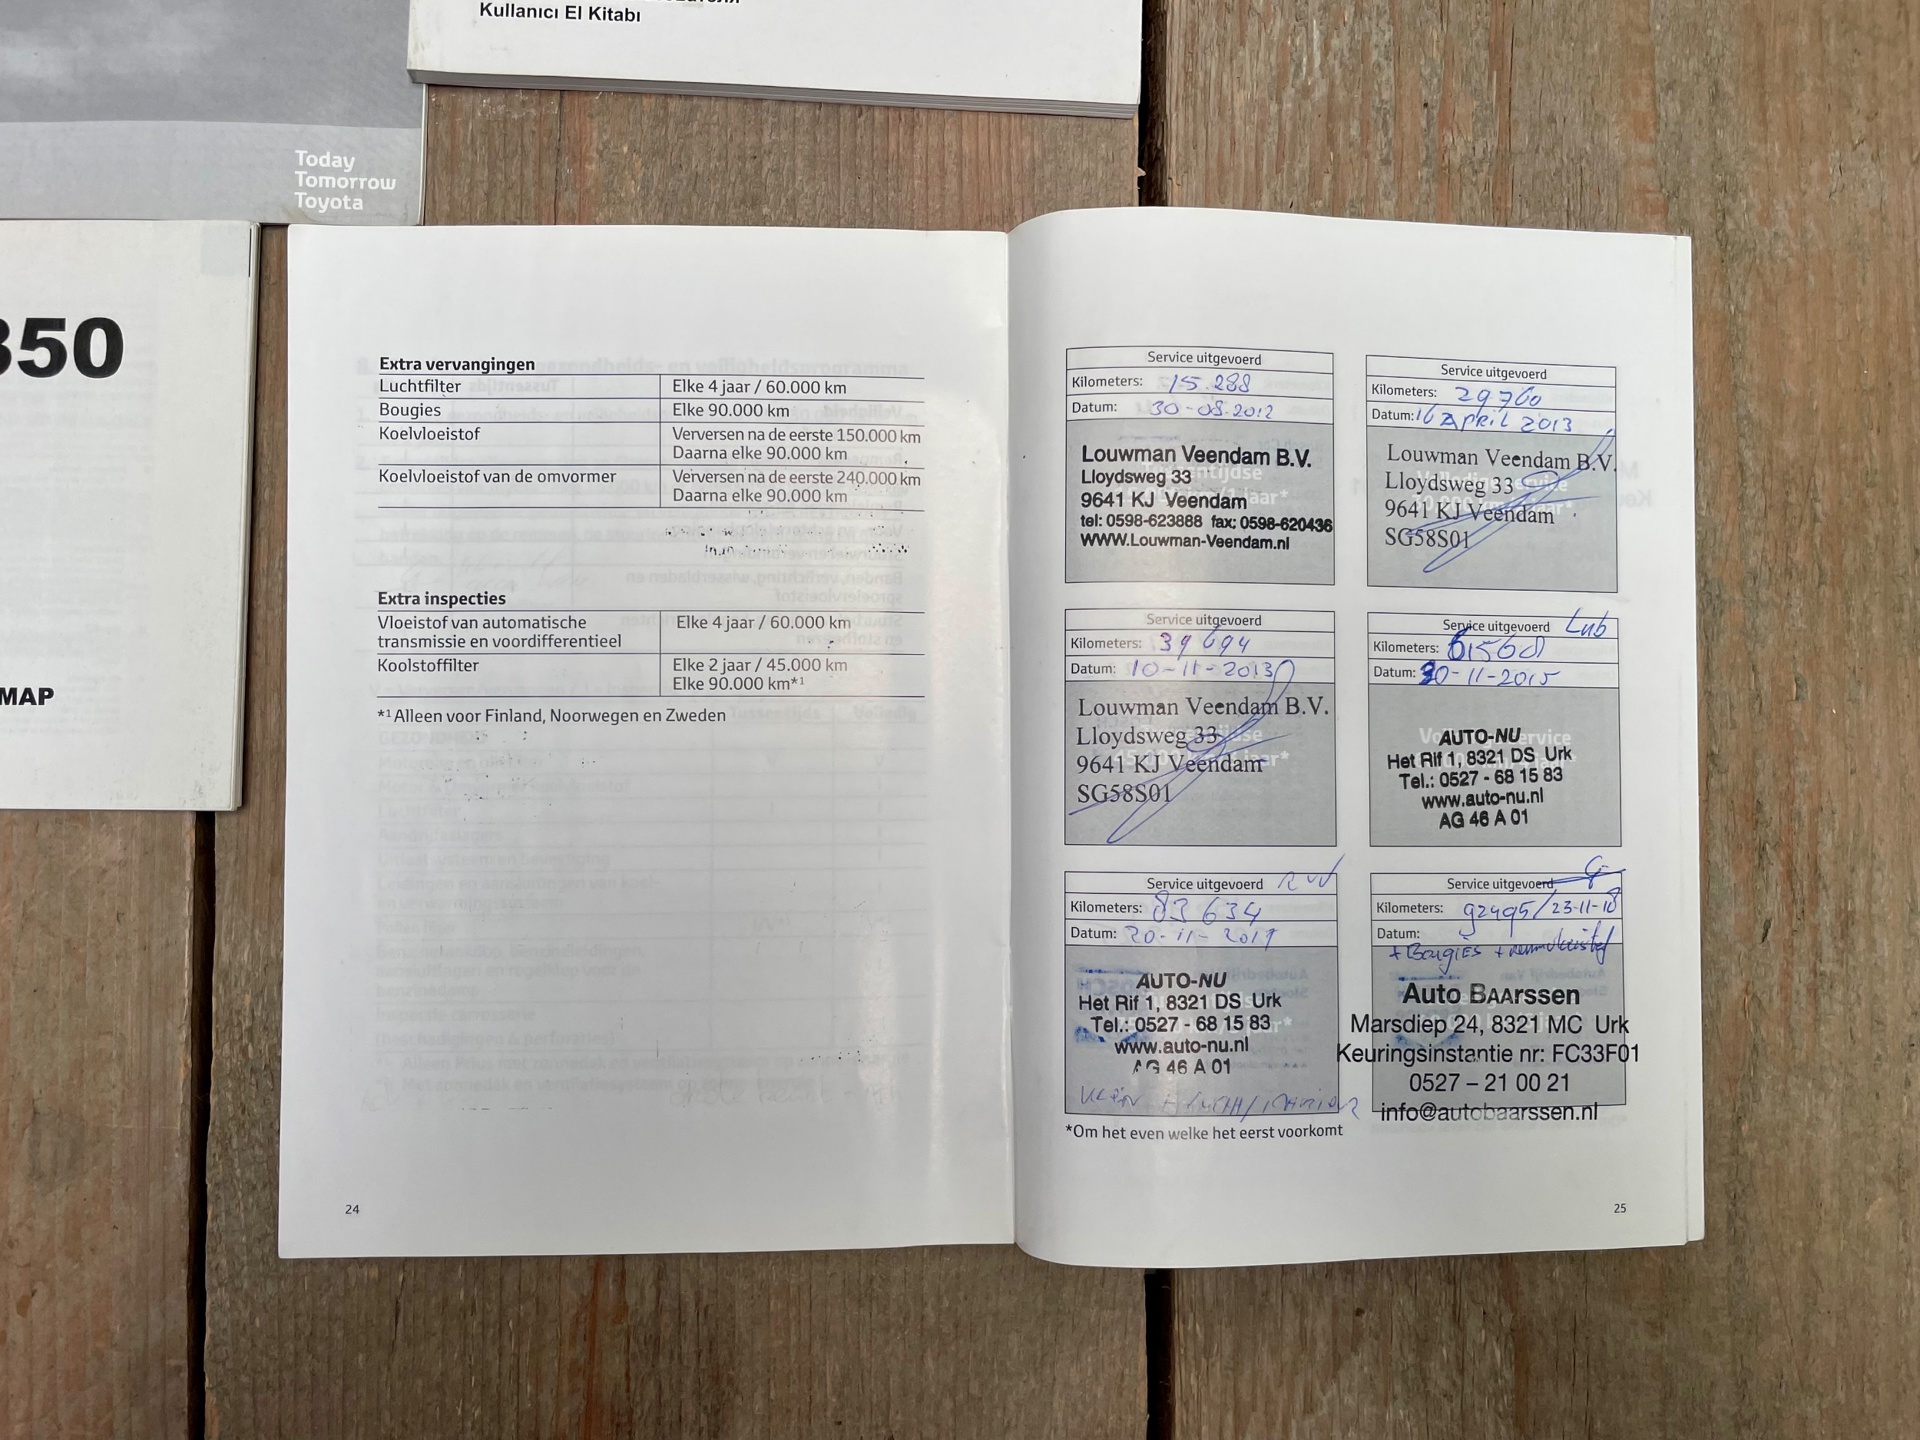 Kullanıcı El Kitabı
Today
Tomorrow
Toyota
350
MAP
Extra vervangingen
Luchtfilter Elke 4 jaar / 60.000 km
Bougies Elke 90.000 km
Koelvloeistof Verversen na de eerste 150.000 km
Daarna elke 90.000 km
Koelvloeistof van de omvormer Verversen na de eerste 240.000 km
Daarna elke 90.000 km
Extra inspecties
Vloeistof van automatische
transmissie en voordifferentieel Elke 4 jaar / 60.000 km
Koolstoffilter Elke 2 jaar / 45.000 km
Elke 90.000 km*1
*1 Alleen voor Finland, Noorwegen en Zweden
24
Service uitgevoerd
Kilometers: 15.288
Datum: 30-08-2012
Louwman Veendam B.V.
Lloydsweg 33
9641 KJ Veendam
tel: 0598-623888 fax: 0598-620436
WWW.Louwman-Veendam.nl
Service uitgevoerd
Kilometers: 29760
Datum: 16 April 2013
Louwman Veendam B.V.
Lloydsweg 33
9641 KJ Veendam
SG58S01
Service uitgevoerd
Kilometers: 39694
Datum: 10-11-2013
Louwman Veendam B.V.
Lloydsweg 33
9641 KJ Veendam
SG58S01
Service uitgevoerd
Kilometers: 61568
Datum: 30-11-2015
AUTO-NU
Het Rif 1, 8321 DS Urk
Tel.: 0527 - 68 15 83
www.auto-nu.nl
AG 46 A 01
Service uitgevoerd
Kilometers: 83634
Datum: 20-11-2017
AUTO-NU
Het Rif 1, 8321 DS Urk
Tel.: 0527 - 68 15 83
www.auto-nu.nl
AG 46 A 01
Service uitgevoerd
Kilometers: 92495/23-11-18
Datum:
+ Bougies + remvloeistof
Auto BAArssen
Marsdiep 24, 8321 MC Urk
Keuringsinstantie nr: FC33F01
0527 – 21 00 21
info@autobaarssen.nl
*Om het even welke het eerst voorkomt
25